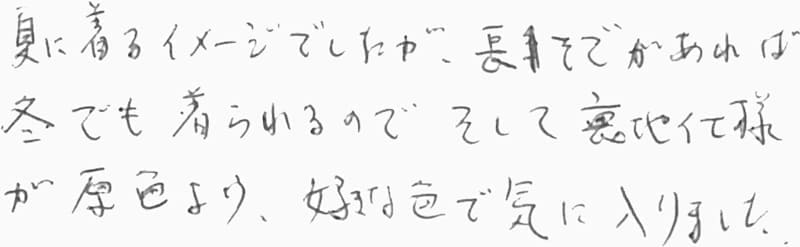 夏に着るイメージでしたが、長そでがあれば
冬でも着られるので そして裏地仕様
が原色より、好きな色で気に入りました。